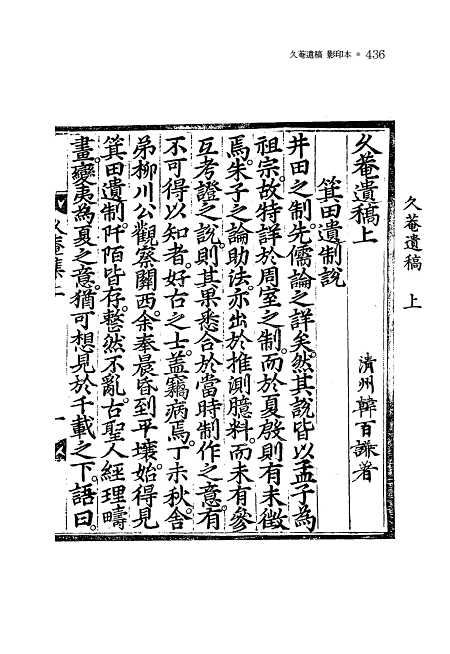 久菴遺稿 影印本 ● 436
久菴遺稿 上
久菴遺稿上
清州韓百謙著
箕田遺制說
井田之制。先儒論之詳矣。然其說皆以孟子為
祖宗。故特詳於周室之制。而於夏殷則有未徵
焉。朱子之論助法。亦出於推測臆料。而未有參
互考證之說。則其果悉合於當時制作之意。有
不可得以知者。好古之士。蓋竊病焉。丁未秋。舍
弟柳川公觀察關西。余奉晨昏到平壤。始得見
箕田遺制。阡陌皆存。整然不亂。古聖人經理疇
畫變夷為夏之意。猶可想見於千載之下。語曰。
久菴集上
一